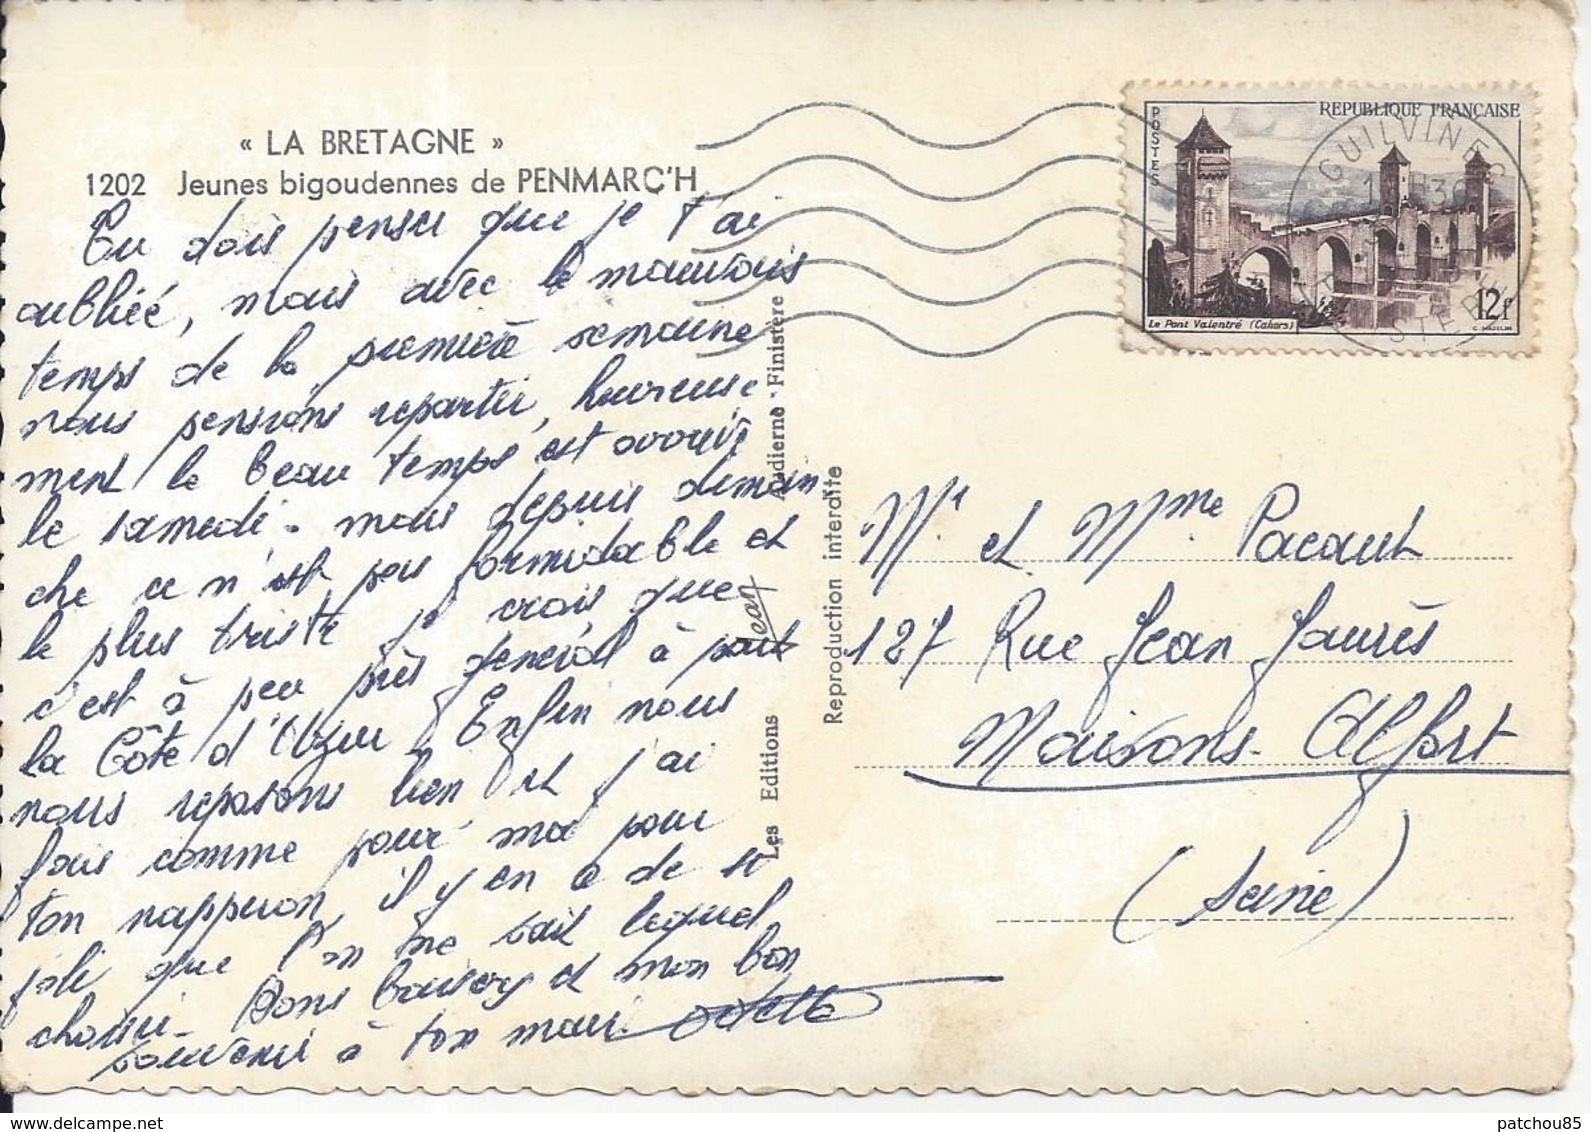 « LA BRETAGNE »
1202 Jeunes bigoudennes de PENMARC'H
Tu dois penser que je t'ai
oubliée, mais avec le mauvais
temps de la première semaine
nous pensions repartir, heureuse
ment le beau temps est
le samedi. mais depuis diman
che ce n'est pas formidable et
le plus triste je crois que
c'est à peu près général à part
la Côte d'Azur Enfin nous
nous reposons bien et j'ai
fais comme pour moi pour
ton napperon, il y en a de si
joli que l'on ne sait lequel
choisir. Bons baisers et mon bon
souvenir à ton mari Odette
Les Editions Jean Audierne · Finistère
Reproduction interdite
POSTES
REPUBLIQUE FRANÇAISE
Le Pont Valentré (Cahors)
12f
C. MAZELIN
GUILVINEC
Mr et Mme Pacaut
127 Rue Jean Jaurès
Maisons-Alfort
(Seine)
patchou85